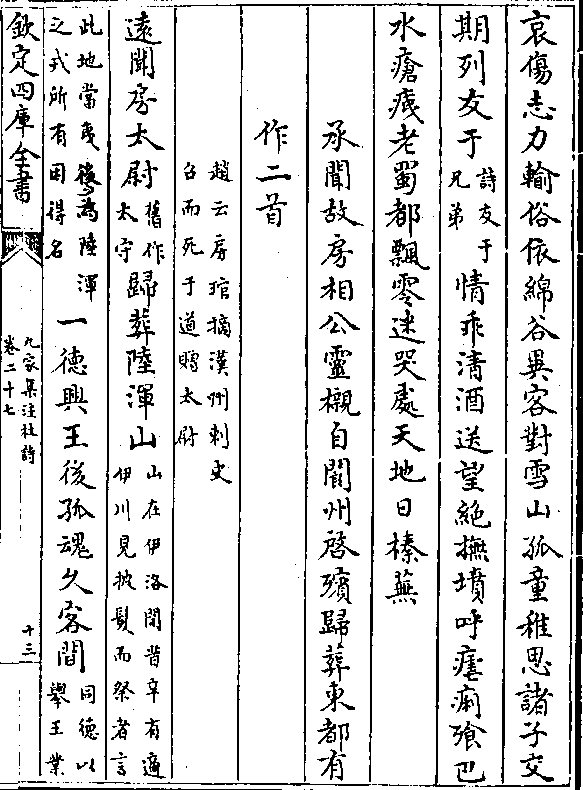 哀傷志力輸俗依綿谷異客對雪山孤童稚思諸子交
期列友于詩友于兄弟情乖清酒送望絕撫墳呼瘧痢飱巴
水瘡痍老蜀都飄零迷哭處天地日榛蕪
承聞故房相公靈櫬自閬州啓殯歸葬東都有
作二首
趙云房琯摘漢州刺史
召而死于道贈太尉
遠聞房太尉舊作太守歸葬陸渾山山在伊洛間昔辛有適伊川見披髮而祭者言
此地當夷後為陸渾之戎所有因得名一德興王後孤魂久客間同德以舉王業
欽定四庫全書
九家集注杜詩
卷二十七
十三